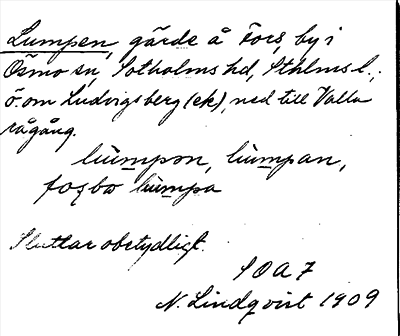 Lumpen, gärde å Fors, by i
Ösmo sn, Sotholms hd, Sthlms l.,
ö. om Ludvigsberg (ek), ned till Valla
rågång.
lùmpən, lùmpan,
foʂbə lùmpa
Sluttar obetydligt.
SOA 7
N. Lindqvist 1909